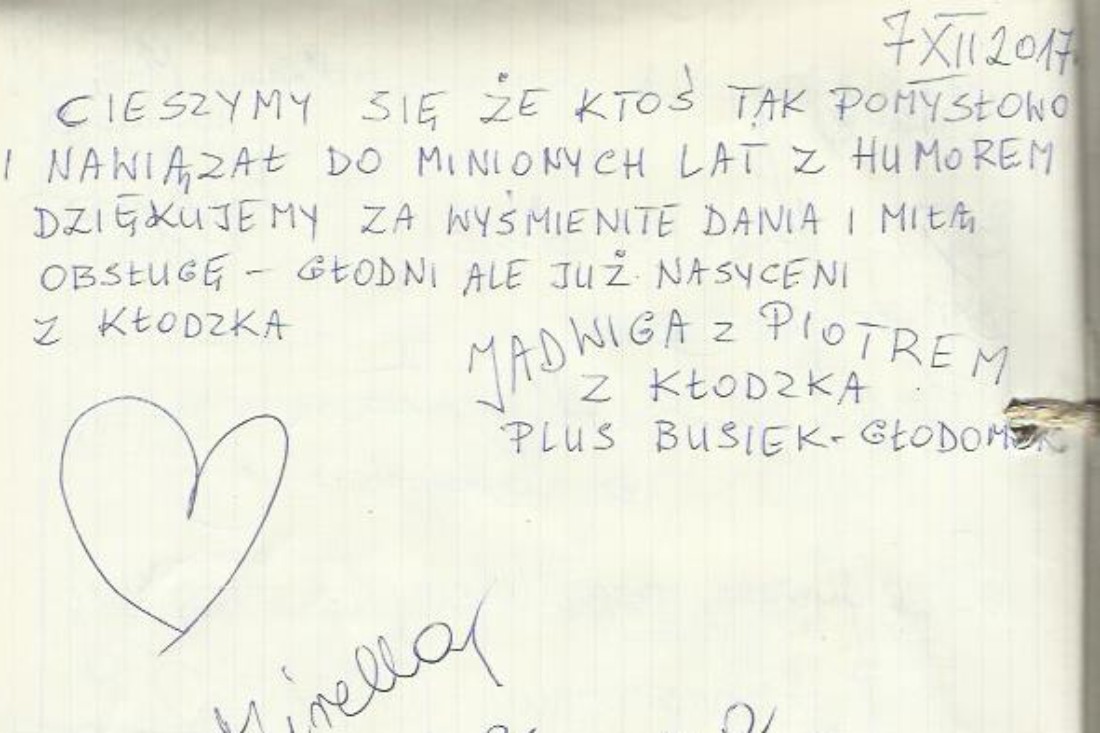 7 XII 2017.
CIESZYMY SIĘ ŻE KTOŚ TAK POMYSŁOWO
I NAWIĄZAŁ DO MINIONYCH LAT Z HUMOREM
DZIĘKUJEMY ZA WYŚMIENITE DANIA I MIŁĄ
OBSŁUGĘ – GŁODNI ALE JUŻ NASYCENI
Z KŁODZKA
JADWIGA Z PIOTREM
Z KŁODZKA
PLUS BUSIEK-GŁODOMOREK
Mirella